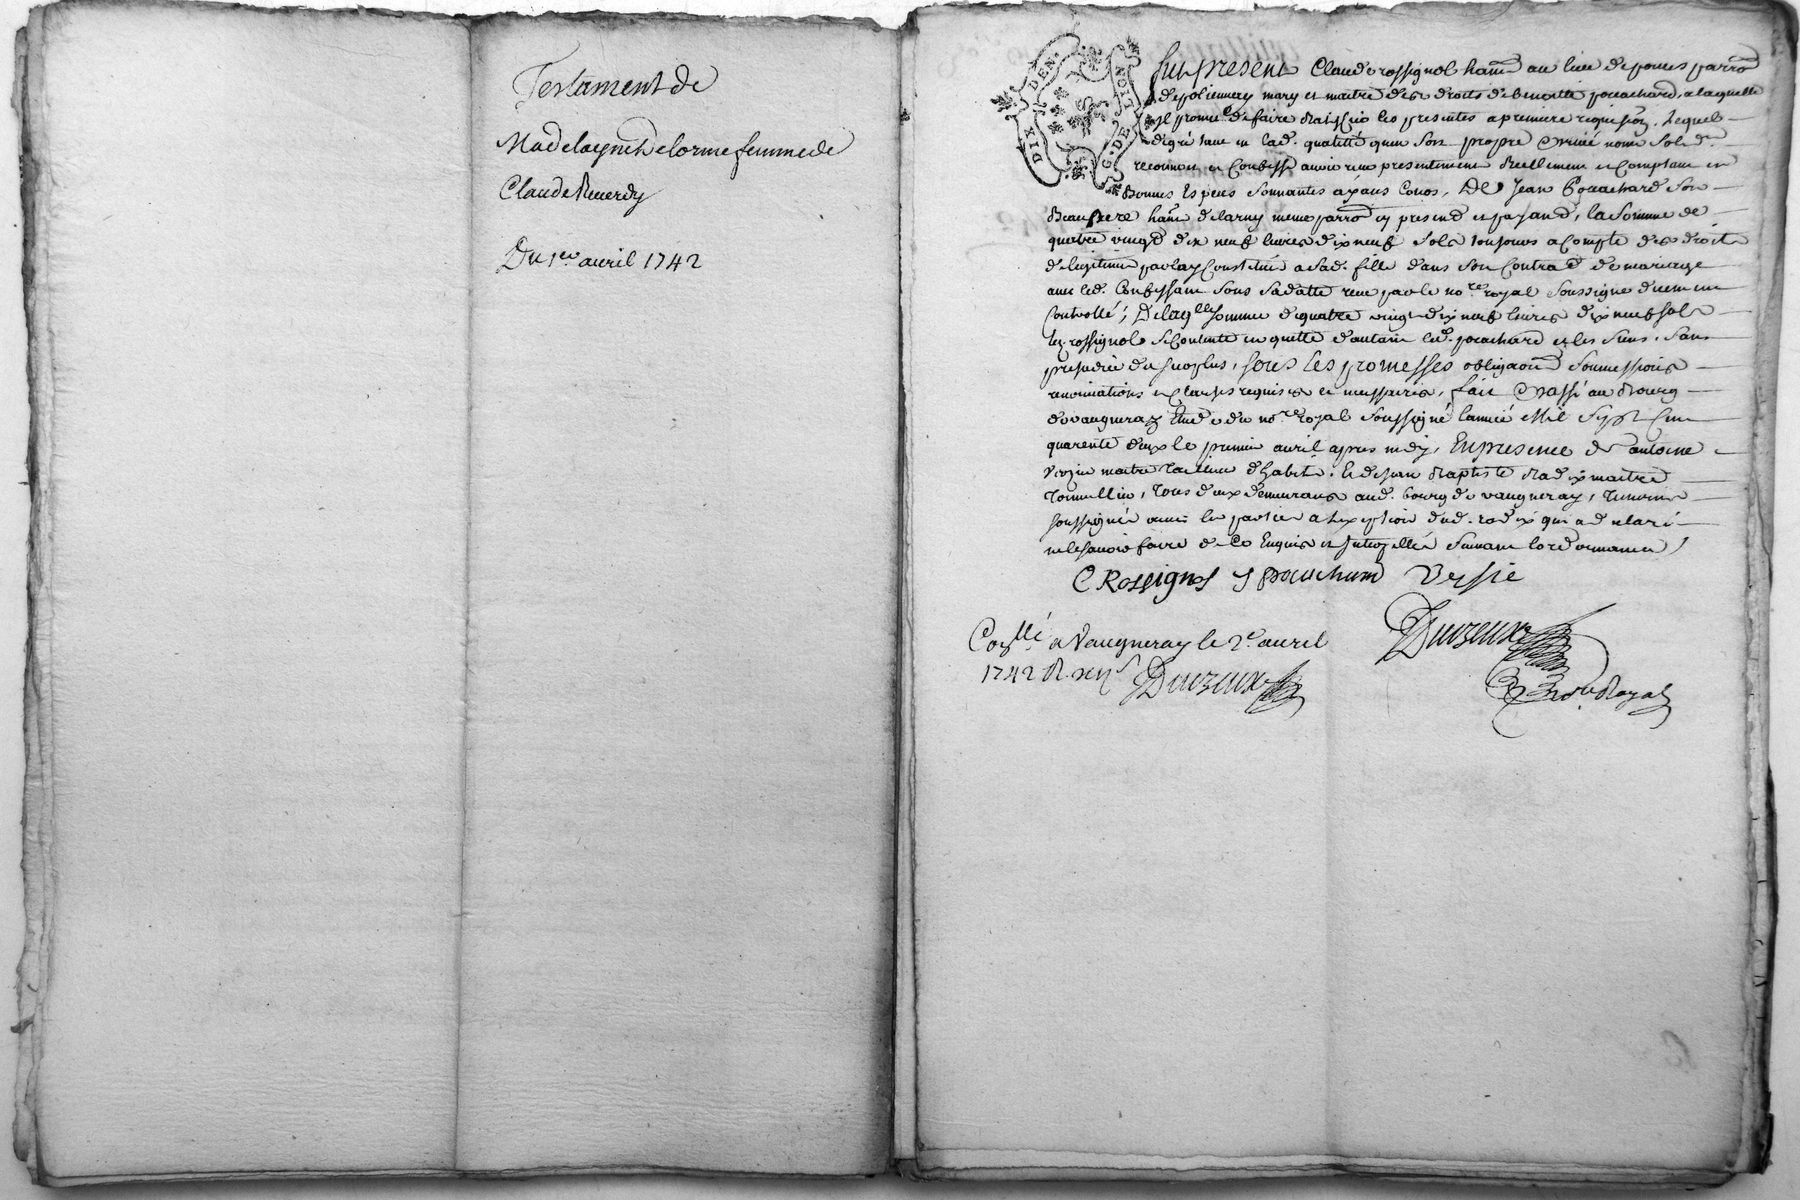 Testament de
Madelaÿne Delorme femme de
Claude Reverdy
Du 1er. avril 1742
DIX DEN.
G. DE LION
Fut present Claude rossignol habnt. au lieu de parrõ
de poliennay mary et maitre des droits de benoitte pouachard, a laquelle
Il promet de faire les presentes a premiere requisiõn. Lequel
de gré tant en lad. qualitté quen son propre et privé nom
reconnoit et Confesse avoir reçu presentement Reellement et Comptant en
Bonnes Especes Sonnantes ayans Cours, De Jean Pouachard Son
Beaufrere habnt. de larny meme parrõ cy present et payand, la Somme de
quatre vingt dix neuf livres dix neuf Sols toujours a Compte des droits
de legitime par lay Constitué a sad. fille dans Son Contrad de mariage
avec led. Confessant Sous Sa datte reçu par le nore. royal Soussigné duement
Controllé; De laqlle Somme de quatre vingt dix neuf livres dix neuf sols
led. rossignol Se Contente en quitte dautant led. pouachard et les Siens, Sans
prejudice du Surplus, Sous Les promesses obligaons Soumessions
renonciations et clauses requises et necessaires, fait et passé au Bourg
de vaugneray Etude du nore. royal Soussigné lannée Mil Sept Cent
quarente deux le premier avril apres midy, En presence de antoine
maitre tailleur dhabits, Et de Jean Baptiste Radix maitre
Tonnellier, tous deux demeurans aud. bourg de vaugneray, temoins
soussignés avec les parties a lexception dud. radix qui a declaré
ne le savoir faire de Ce Enquis et Interpellés Suivant lordonnance
C. Rossignol J pouachard Versie
Collé. a Vaugneray le 2e. avril
1742 R.
Duvzeux
Duvzeux
nore. Royal